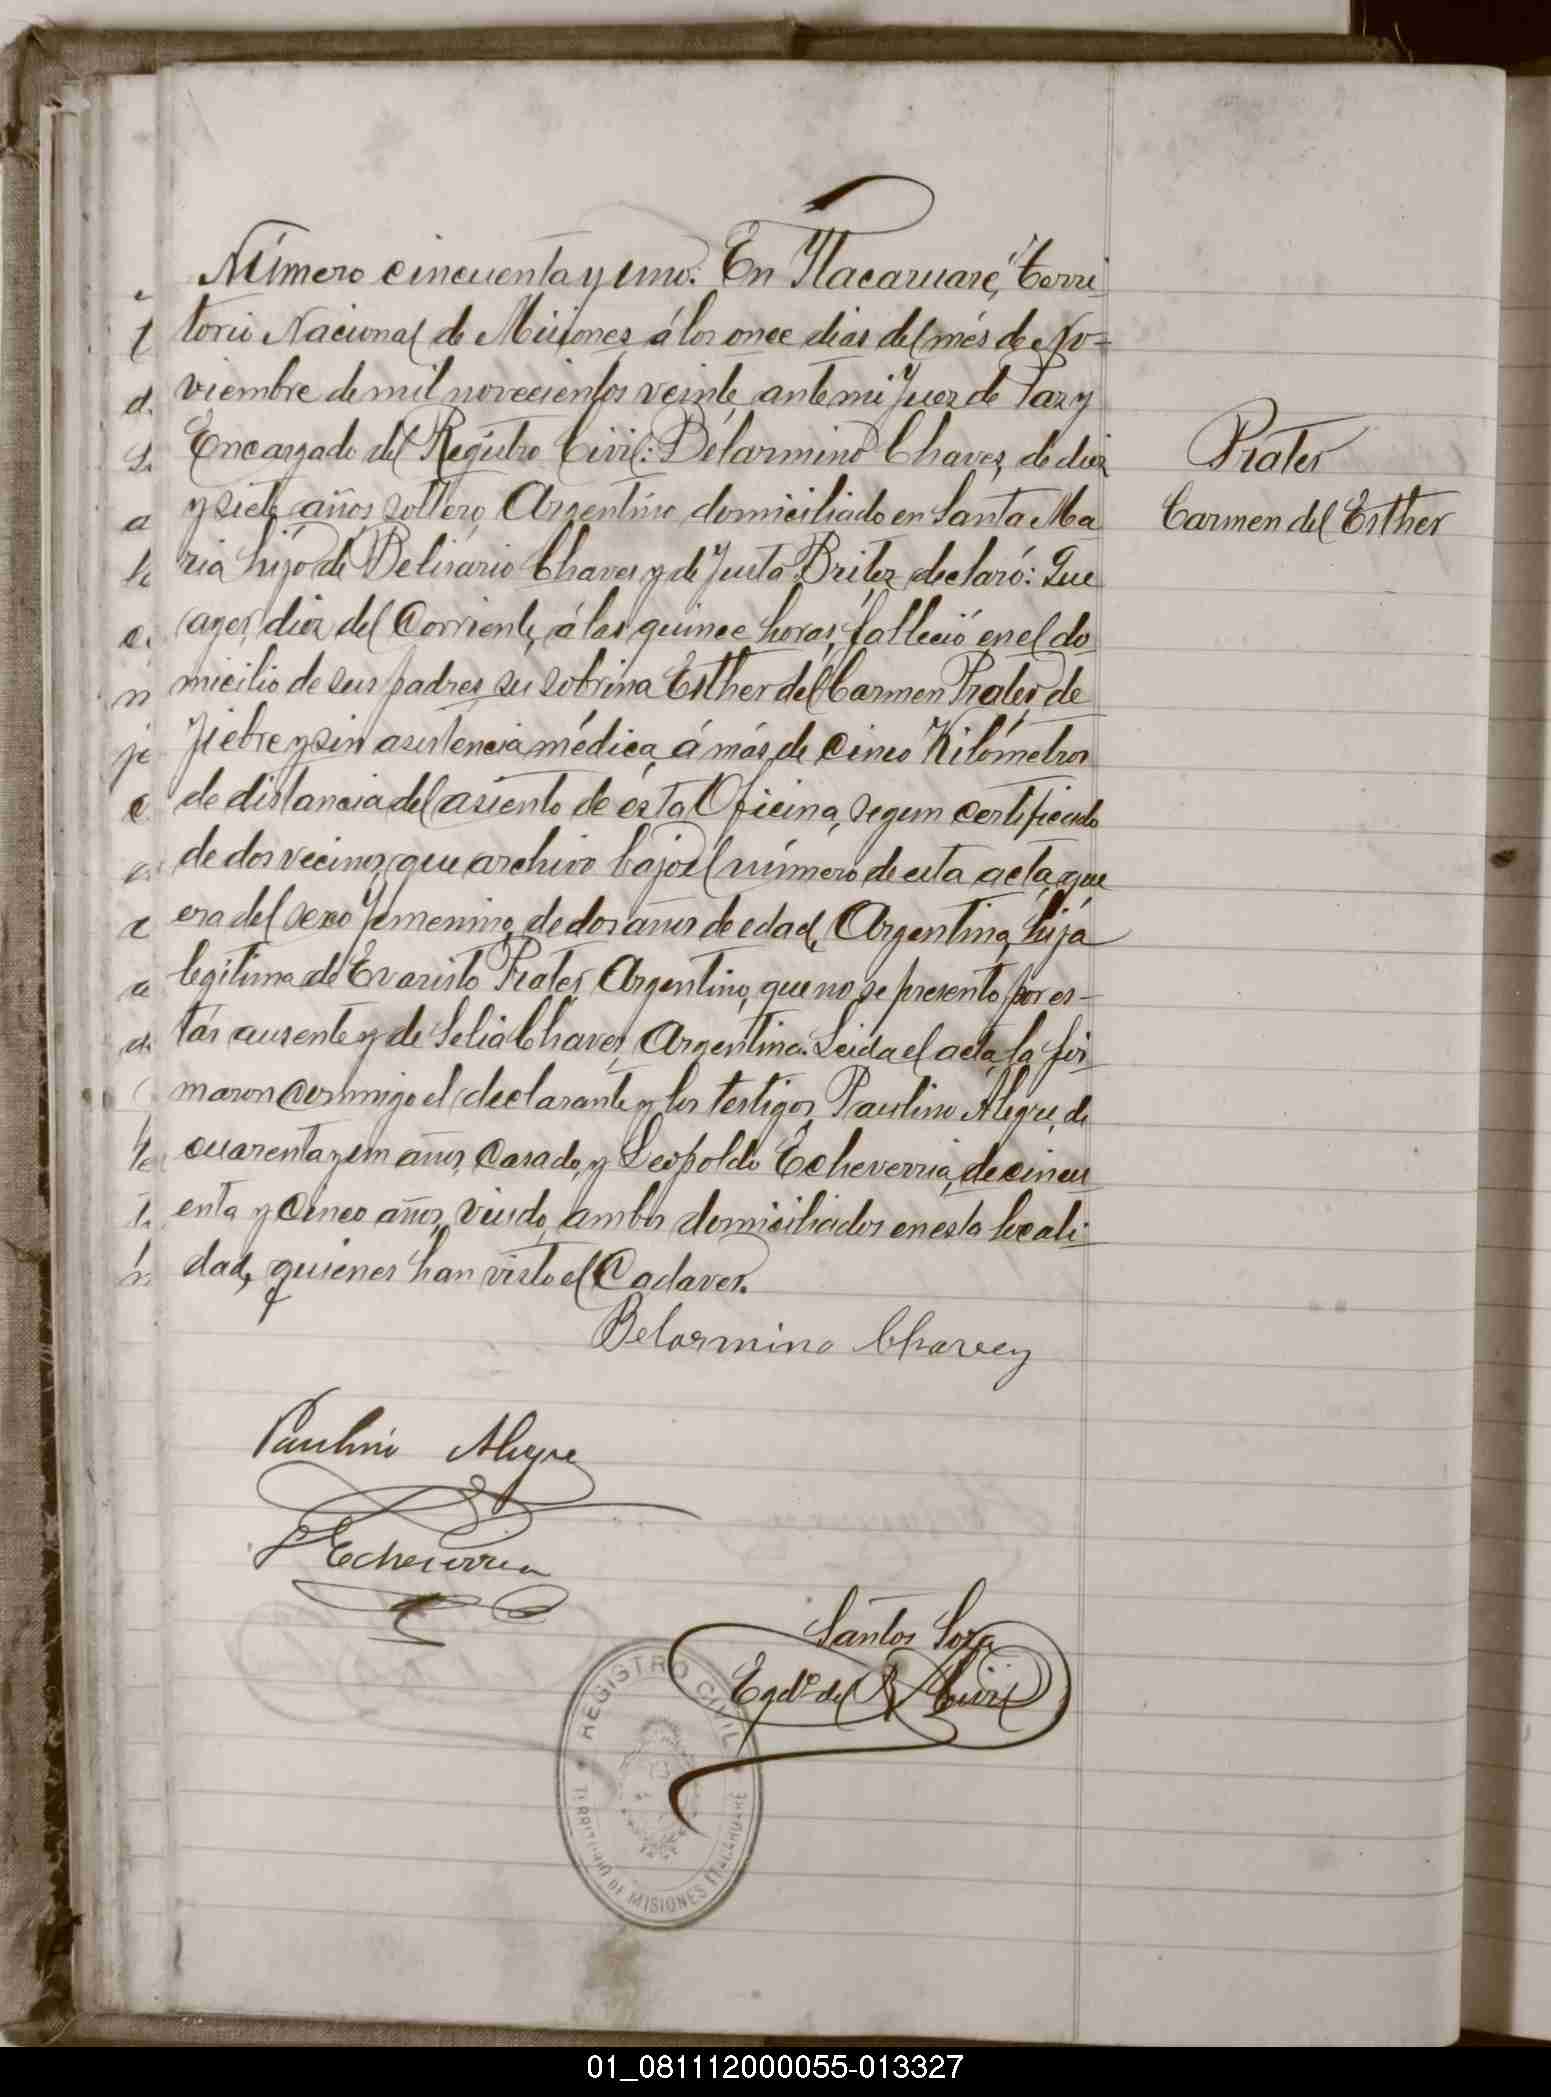 Número cincuenta y uno. En Ytacaruaré, Terri
torio Nacional de Misiones á los once dias del més de No=
viembre de mil novecientos veinte, ante mi Juez de Paz y
Encargado del Registro Civil: Belarmino Chaves, de diez
y siete años, soltero, Argentino, domiciliado en Santa Ma
ria hijo de Belisario Chaves y de Justa Britez, declaró: Que
ayer, diez del Corriente, á las quince horas, falleció en el do
micilio de sus padres, su sobrina Esther del Carmen Prates, de
fiebre y sin asistencia médica, á más de cinco Kilómetros
de distancia del asiento de ésta Oficina, segun certificado
de dos vecinos, que archivo bajo el número de esta acta, que
era del sexo femenino, de dos años de edad, Argentina, hija
legitima de Evaristo Prates, Argentino, que no se presento por es-
tar ausente y de Selia Chaves, Argentina. Leida el acta, la fir
maron conmigo el declarante y los testigos, Paulino Alegre, de
cuarenta y un años, Casado, y Leopoldo Echeverria, de cincu
enta y cinco años, Viudo, ambos domiciliados en esta locali
dad, quienes han visto el Cadaver.
Prates
Carmen del Esther
Belarmino Chavez
Paulino Alegre
Echeverria
Santos Soza
Egdº del R. Civil
REGISTRO CIVIL
TERRITORIO DE MISIONES ITACARUARÉ
01_081112000055-013327